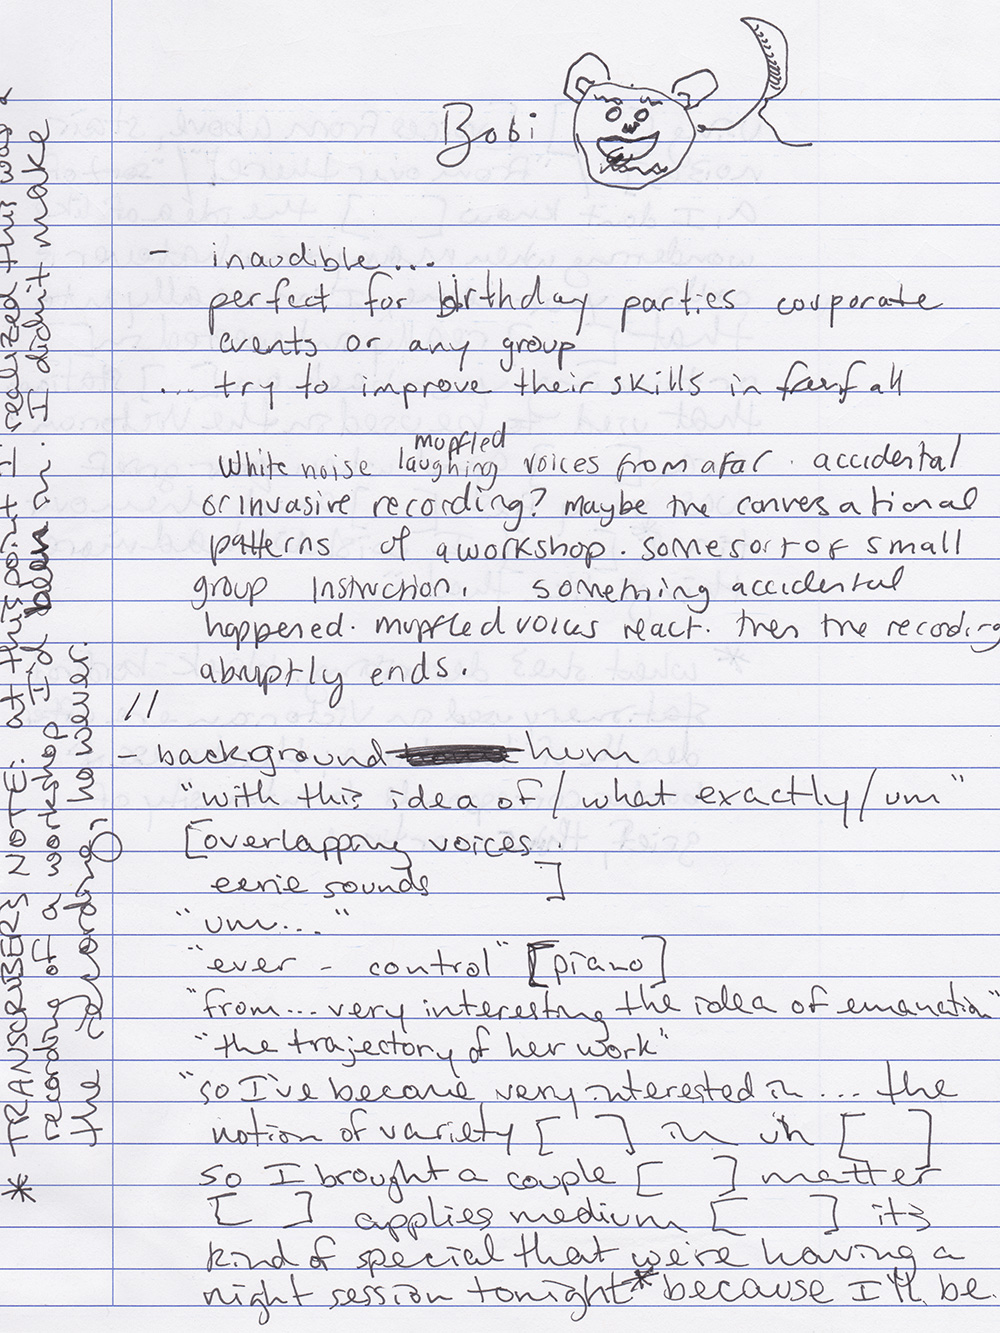 Bobi
- inaudible...
perfect for birthday parties corporate
events or any group
... try to improve their skills in fall
muffled
White noise laughing voices from afar. accidental
or invasive recording? maybe the conversational
patterns of a workshop. some sort of small
group instruction. something accidental
happened. muffled voices react. then the recording
abruptly ends.
//
- background hum
"with this idea of / what exactly / um"
[overlapping voices.
eerie sounds ]
"um..."
"ever - control" [piano]
"from... very interesting the idea of emanation"
"the trajectory of her work"
"so I've become very interested in ... the
notion of variety [ ] in uh [ ]
so I brought a couple [ ] matter
[ ] applies medium [ ] its
kind of special that we're having a
night session tonight* because I'll be
* TRANSCRIBERS NOTE: at this point I realized this was a
recording of a workshop I'd been in. I didn't make
the recording, however.